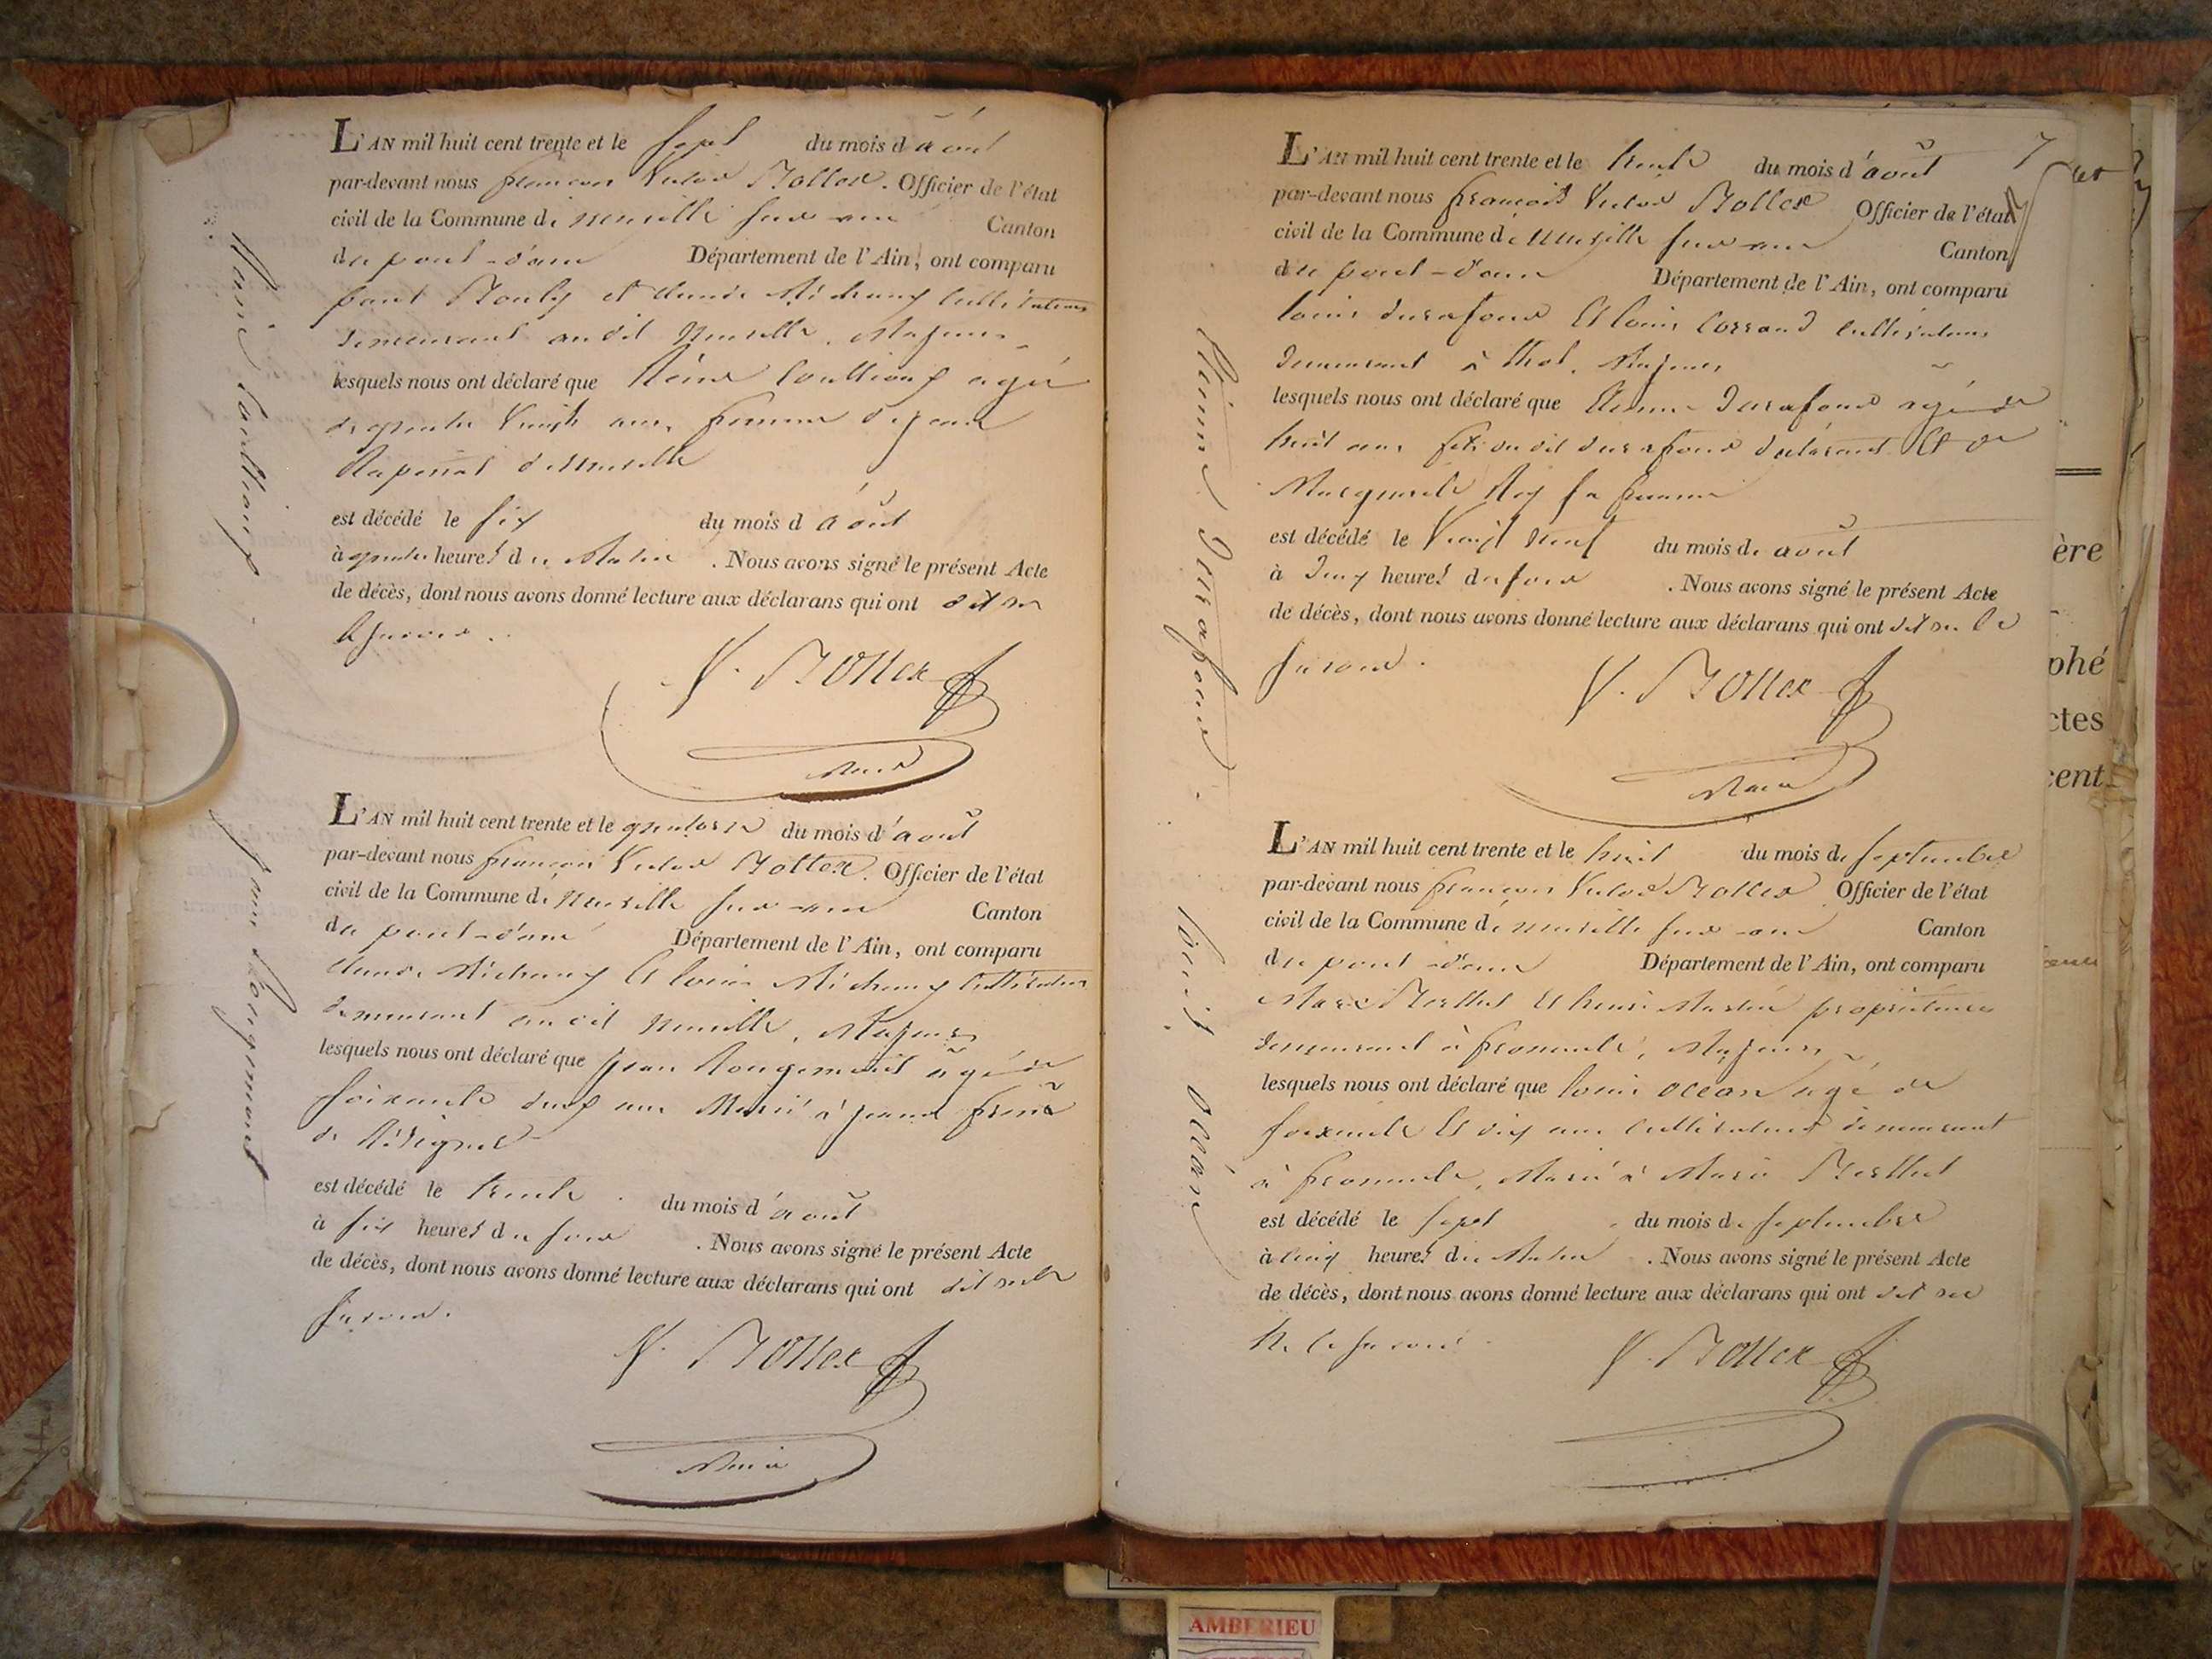 L'AN mil huit cent trente et le sept du mois d'août
par-devant nous françois Victor Bollex. Officier de l'état
civil de la Commune de neuville sur ain Canton
du pont-d'ain Département de l'Ain, ont comparu
et Claude Michaux cultivateurs
demeurant au dit Neuville, Majeurs
lesquels nous ont déclaré que agée
de quatre vingts ans, femme de
de Neuville
est décédé le six du mois d août
à quatre heures du Matin. Nous avons signé le présent Acte
de décès, dont nous avons donné lecture aux déclarans qui ont dit ne
le savoir.
V. Bollex
Maire
L'AN mil huit cent trente et le quatorze du mois d'août
par-devant nous françois Victor Bollex. Officier de l'état
civil de la Commune de Neuville sur ain Canton
du pont-d'ain Département de l'Ain, ont comparu
Claude Michaux et louis Michaux Cultivateurs
demeurant au dit Neuville, Majeurs
lesquels nous ont déclaré que jean Rougemont âgé de
soixante deux ans Marié à
de
est décédé le treize du mois d'août
à six heures du soir. Nous avons signé le présent Acte
de décès, dont nous avons donné lecture aux déclarans qui ont dit ne le
savoir.
V. Bollex
Maire
jean Rougemont
7
L'AN mil huit cent trente et le trente du mois d'août
par-devant nous françois Victor Bollex Officier de l'état
civil de la Commune de Neuville sur ain Canton
du pont-d'ain Département de l'Ain, ont comparu
louis durafour Et louis cultivateurs
demeurant à thol, Majeurs
lesquels nous ont déclaré que durafour agé de
huit ans fils du dit durafour déclarant Et de
Marguerite Rey sa femme
est décédé le Vingt neuf du mois de août
à Deux heures du soir. Nous avons signé le présent Acte
de décès, dont nous avons donné lecture aux déclarans qui ont dit ne le
savoir.
V. Bollex
Maire
Durafour
L'AN mil huit cent trente et le huit du mois de septembre
par-devant nous françois Victor Bollex Officier de l'état
civil de la Commune de neuville sur ain Canton
du pont-d'ain Département de l'Ain, ont comparu
Marc Et henri Martin propriétaires
demeurant à fromente, Majeurs
lesquels nous ont déclaré que louis océan agé de
soixante Et dix ans cultivateur demeurant
à fromente, Marié à Marie
est décédé le sept du mois de septembre
à cinq heures du Matin. Nous avons signé le présent Acte
de décès, dont nous avons donné lecture aux déclarans qui ont dit ne
le savoir
V. Bollex
louis océan
ère
phé
ctes
cent
AMBERIEU